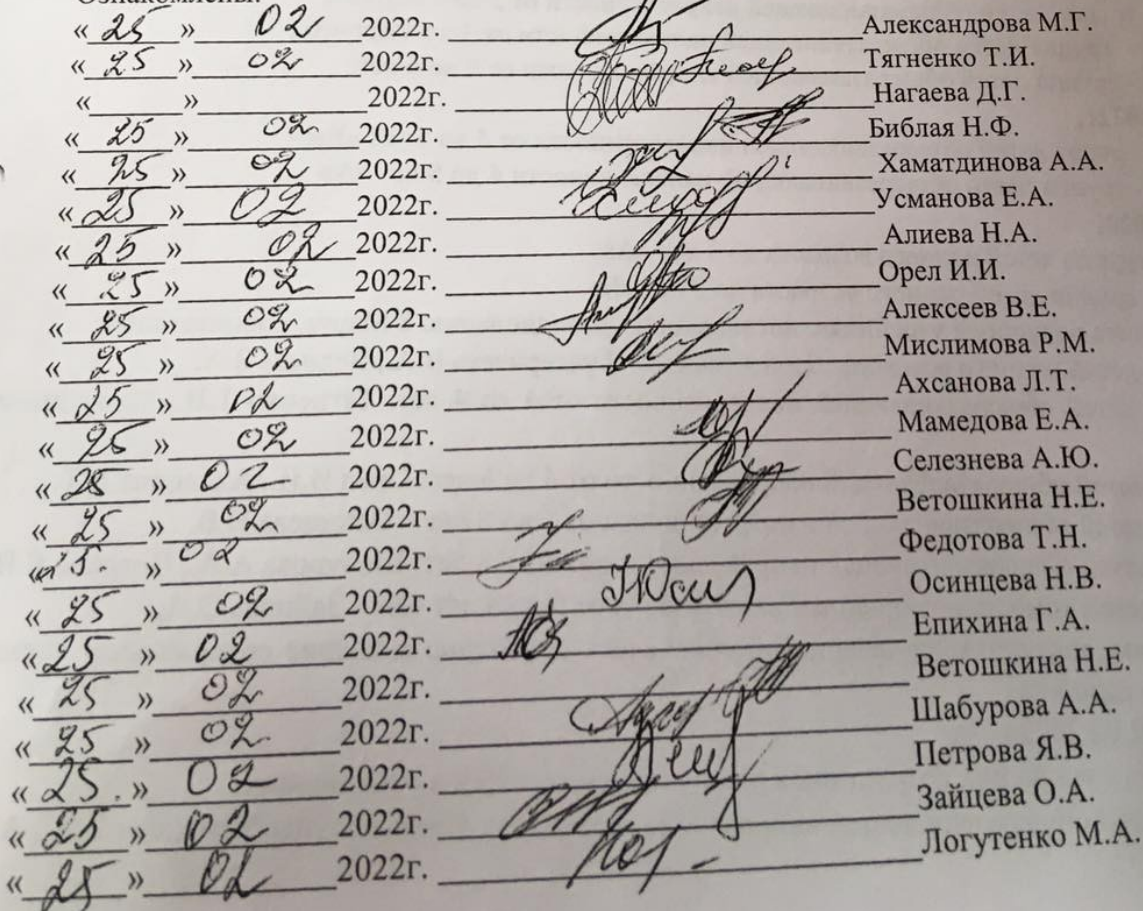 Ознакомлены:
« 25 » 02 2022г. Александрова М.Г.
« 25 » 02 2022г. Тягненко Т.И.
« » 2022г. Нагаева Д.Г.
« 25 » 02 2022г. Библая Н.Ф.
« 25 » 02 2022г. Хаматдинова А.А.
« 25 » 02 2022г. Усманова Е.А.
« 25 » 02 2022г. Алиева Н.А.
« 25 » 02 2022г. Орел И.И.
« 25 » 02 2022г. Алексеев В.Е.
« 25 » 02 2022г. Мислимова Р.М.
« 25 » 02 2022г. Ахсанова Л.Т.
« 25 » 02 2022г. Мамедова Е.А.
« 25 » 02 2022г. Селезнева А.Ю.
« 25 » 02 2022г. Ветошкина Н.Е.
« 25. » 02 2022г. Федотова Т.Н.
« 25 » 02 2022г. Осинцева Н.В.
« 25 » 02 2022г. Епихина Г.А.
« 25 » 02 2022г. Ветошкина Н.Е.
« 25 » 02. 2022г. Шабурова А.А.
« 25. » 02 2022г. Петрова Я.В.
« 25 » 02 2022г. Зайцева О.А.
« 25 » 02 2022г. Логутенко М.А.